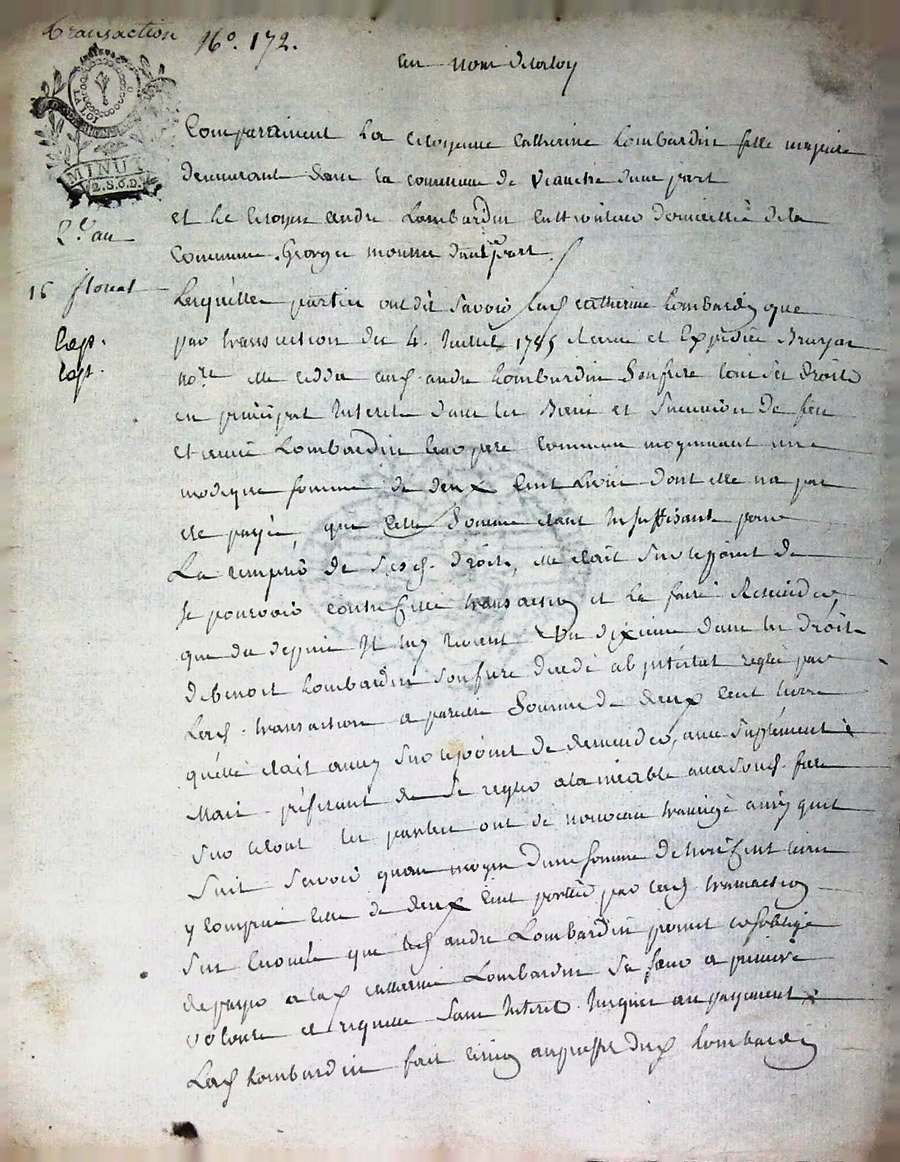 transaction
N°. 172.
au nom de la loy
LA LOI
MINUTE
2. S. 6. D.
Comparaissent La Citoyenne Catherine Lombardin fille majeure
demeurant dans la commune de d'une part
et le Citoyen andre Lombardin domicillié de la
2e. an
Commune George d'autre part.
16 floreal
Lesquelles parties ont dit savoir lad. catherine Lombardin que
Exp.
par transaction du 4. Juillet 1785 Recue et Expediée Bruyas
Exp.
nore. elle cedda aud. andre Lombardin Son frere tous ses droits
en principal Interets dans les Biens et Succession de feu
etienne Lombardin leur pere commun moyennant une
modique somme de deux Cent Livres dont elle na pas
ete payée, que cette Somme etant Insuffisante pour
La remplir de sesd. droits, elle etait sur le point de
se pourvoir contre cette transaction et la faire Rescinder,
que du depuis Il luy revient Un dixieme dans les droits
de benoit Lombardin son frere decedé abintestat reglé par
lad. transaction a pareille Somme de deux Cent livres
quelle etait aussy sur le point de demander, avec suplément
Mais préférant de se regler alamiable avec sond. frere
sur letout les parties ont de nouveau transigé ainsy quil
suit savoir quau moyen d'une somme de livres
y compris celle de deux Cent portée par lad. transaction
sus énoncée que led. andre Lombardin promet et soblige
de payer a lad. catherine Lombardin sa soeur a premiere
volonté et requete sans Interet jusques au payement
Lad. Lombardin fait aud. Lombardin